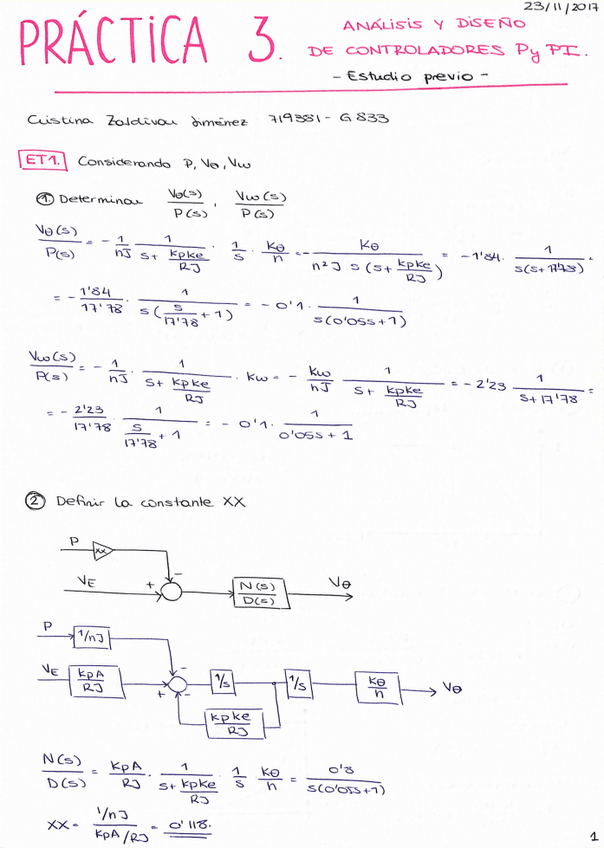 23/11/2017
PRÁCTICA 3. ANÁLISIS Y DISEÑO
DE CONTROLADORES P y PI.
- Estudio previo -
Cristina Zaldívar Jiménez 719381 - G833
ET1. Considerando P, Vθ, Vω
① Determinar Vθ(s)/P(s), Vω(s)/P(s)
Vθ(s)/P(s) = - 1/nJ · 1/(s + kpke/RJ) · 1/s · kθ/n = - kθ/(n²J s (s + kpke/RJ)) = -1'84 · 1/(s(s+17'78)) =
= - 1'84/17'78 · 1/(s(s/17'78 + 1)) = - 0'1 · 1/(s(0'05s+1))
Vω(s)/P(s) = - 1/nJ · 1/(s + kpke/RJ) · kω = - kω/nJ · 1/(s + kpke/RJ) = - 2'23 1/(s+17'78) =
= - 2'23/17'78 · 1/(s/17'78 + 1) = - 0'1 · 1/(0'05s + 1)
② Definir la constante XX
P
xx
-
VE + N(s)/D(s) Vθ
P 1/nJ
-
VE kpA/RJ + - 1/s 1/s kθ/n Vθ
kpke/RJ
N(s)/D(s) = kpA/RJ · 1/(s + kpke/RJ) · 1/s kθ/n = 0'3/(s(0'05s+1))
XX = (1/nJ)/(kpA/RJ) = 0'118.
1